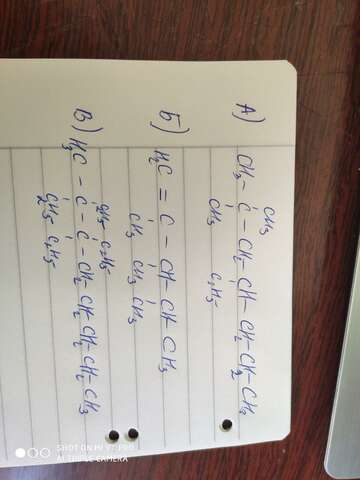 CH3
А) CH3 - C - CH2 - CH - CH2 - CH2 - CH3
CH3 C2H5
Б) H2C = C - CH - CH - CH3
CH3 CH3 CH3
C2H5 C2H5
В) H3C - C - C - CH2 - CH2 - CH2 - CH2 - CH3
C2H5 C2H5
SHOT ON MI 9 PRO
AI TRIPLE CAMERA